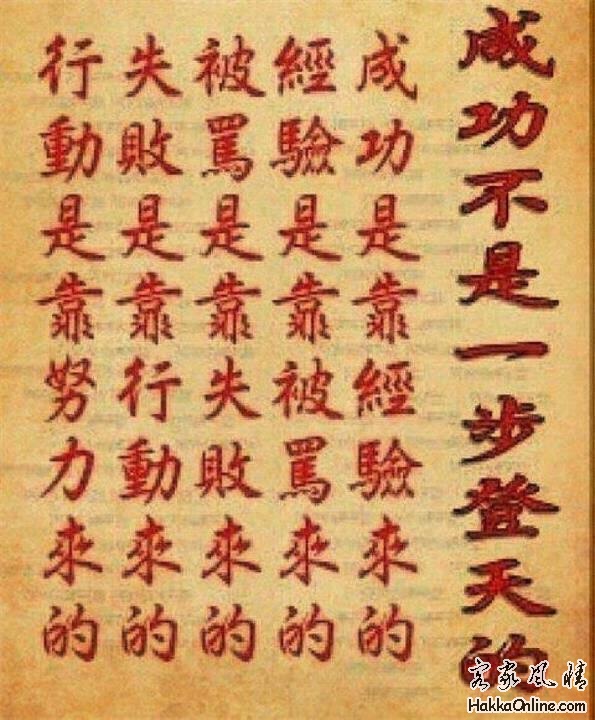 成功不是一步登天的
成功是靠經驗來的
經驗是靠被罵來的
被罵是靠失敗來的
失敗是靠行動來的
行動是靠努力來的
客家風情
HakkaOnline.com